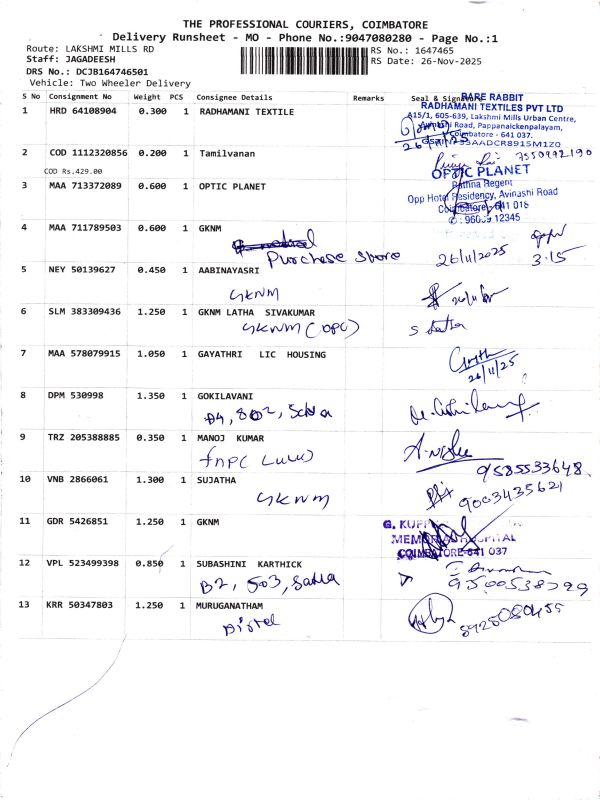 THE PROFESSIONAL COURIERS, COIMBATORE
Delivery Runsheet - MO - Phone No.:9047080280 - Page No.:1
Route: LAKSHMI MILLS RD
RS No.: 1647465
Staff: JAGADEESH
RS Date: 26-Nov-2025
DRS No.: DCJB164746501
Vehicle: Two Wheeler Delivery
S No Consignment No Weight PCS Consignee Details Remarks Seal & Signature
RARE RABBIT
1 HRD 64108904 0.300 1 RADHAMANI TEXTILE
RADHAMANI TEXTILES PVT LTD
A15/1, 605-639, Lakshmi Mills Urban Centre,
Road, Pappanaickenpalayam,
Coimbatore - 641 037.
33AADCR8915M1Z0
26/11/25
2 COD 1112320856 0.200 1 Tamilvanan
7550992190
COD Rs.429.00
3 MAA 713372089 0.600 1 OPTIC PLANET
OPTIC PLANET
Rathna Regent
Opp Hotel Residency, Avinashi Road
Coimbatore - 641 018
12345
4 MAA 711789503 0.600 1 GKNM
Purchase store
26/11/2025
3.15
5 NEY 50139627 0.450 1 AABINAYASRI
GKNM
26/11
6 SLM 383309436 1.250 1 GKNM LATHA SIVAKUMAR
GKNM (OPC)
S Latha
7 MAA 578079915 1.050 1 GAYATHRI LIC HOUSING
26/11/25
8 DPM 530998 1.350 1 GOKILAVANI
9 TRZ 205388885 0.350 1 MANOJ KUMAR
9585533648
10 VNB 2866061 1.300 1 SUJATHA
GKNM
9003435621
11 GDR 5426851 1.250 1 GKNM
G. KUPP
MEMORIAL HOSPITAL
COIMBATORE-641 037
12 VPL 523499398 0.850 1 SUBASHINI KARTHICK
B2, 503,
9500538799
13 KRR 50347803 1.250 1 MURUGANATHAM
8925080455